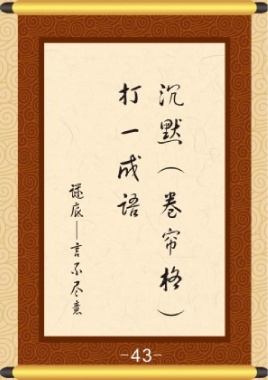 沉默（卷帘格）
打一成语
谜底——言不尽意
-43-